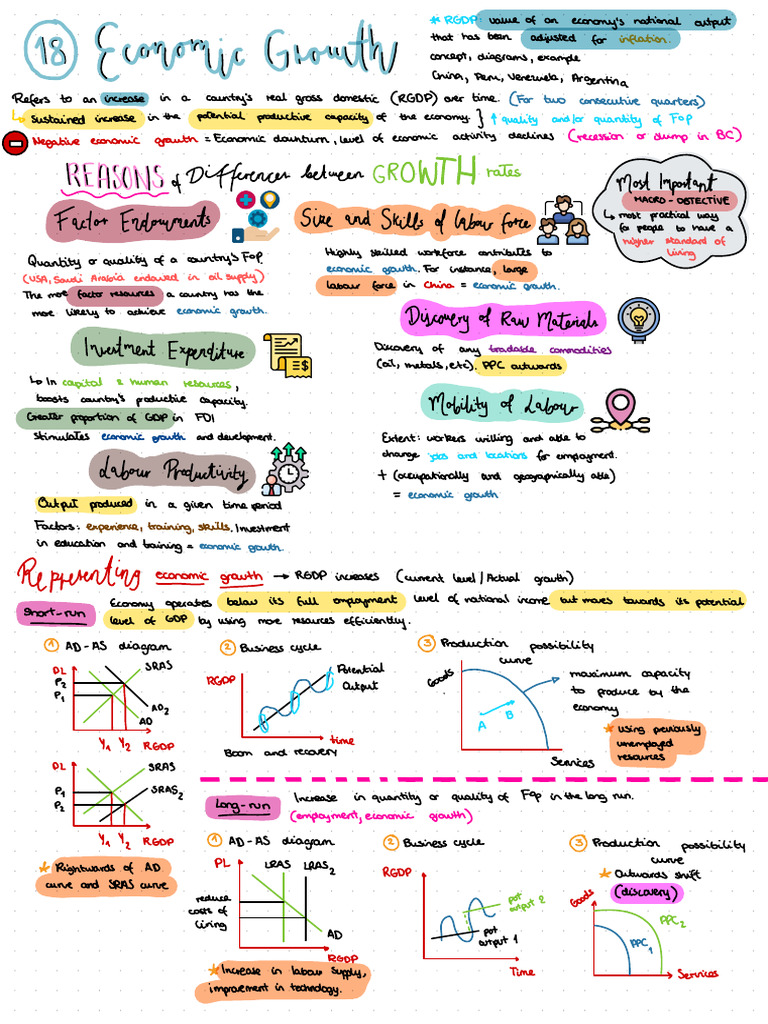 18 Economic Growth
* RGDP: value of an economy's national output
that has been adjusted for inflation.
concept, diagrams, example
China, Peru, Venezuela, Argentina
Refers to an increase in a country's real gross domestic (RGDP) over time. (For two consecutive quarters)
Sustained increase in the potential productive capacity of the economy. } ↑ quality and/or quantity of FoP
Negative economic growth = Economic downturn, level of economic activity declines (recession or slump in BC)
REASONS of Differences between GROWTH rates
Most Important
MACRO-OBJECTIVE
↳ most practical way
for people to have a
higher standard of
living
Factor Endowments
Quantity or quality of a country's FoP
(USA, Saudi Arabia endowed in oil supply)
The more factor resources a country has the
more likely to achieve economic growth.
Size and Skills of labour force
Highly skilled workforce contributes to
economic growth. For instance, large
labour force in China = economic growth.
Discovery of Raw Materials
Discovery of any tradable commodities
(oil, metals, etc). PPC outwards
Investment Expenditure
↳ In capital & human resources,
boosts country's productive capacity.
Greater proportion of GDP in FDI
stimulates economic growth and development.
Mobility of Labour
Extent: workers willing and able to
change jobs and locations for employment.
+ (occupationally and geographically able)
= economic growth
Labour Productivity
Output produced in a given time period
Factors: experience, training, skills. Investment
in education and training = economic growth.
Representing economic growth → RGDP increases (current level / Actual growth)
Short-run
Economy operates below its full employment level of national income but moves towards its potential
level of GDP by using more resources efficiently.
1 AD-AS diagram
PL
P2
P1
SRAS
AD2
AD
Y1 Y2 RGDP
PL
P1
P2
SRAS
SRAS2
Y1 Y2 RGDP
* Rightwards of AD
curve and SRAS curve
2 Business cycle
RGDP
Potential
Output
time
Boom and recovery
3 Production possibility
curve
Goods
A
B
Services
maximum capacity
to produce by the
economy
* using previously
unemployed
resources
Long-run
Increase in quantity or quality of FoP in the long run.
(employment, economic growth)
1 AD-AS diagram
PL
LRAS LRAS2
reduce
costs of
living
AD
RGDP
* Increase in labour supply,
improvement in technology.
2 Business cycle
RGDP
pot
output 2
pot
output 1
Time
3 Production possibility
curve
* Outwards shift
(discovery)
Goods
PPC2
PPC1
Services